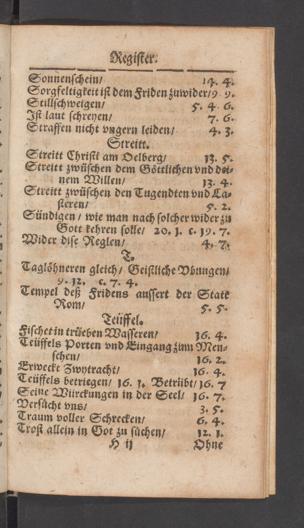 Register.
Sonnenschein/ 13. 4.
Sorgfeltigkeit ist dem Friden zuwider/ 9. 9.
Stillschweigen/ 5. 4. 6.
Ist laut schreyen/ 7. 6.
Straffen nicht vngern leiden/ 4. 3.
Streitt.
Streitt Christi am Oelberg/ 13. 5.
Streitt zwüschen dem Göttlichen vnd dei-
nem Willen/ 13. 4.
Streitt zwüschen den Tugendten vnd La-
steren/ 5. 2.
Sündigen/ wie man nach solcher wider zu
Gott kehren solle/ 20. 1. c. 19. 7.
Wider dise Reglen/ 4. 7.
T.
Taglöhneren gleich/ Geistliche Vbungen/
9. 12. c. 7. 4.
Tempel deß Fridens aussert der Statt
Rom/ 5. 5.
Teüffel.
Fischet in trüeben Wasseren/ 16. 4.
Teüffels Porten vnd Eingang zum Men-
schen/ 16. 2.
Erweckt Zwytracht/ 16. 4.
Teüffels betriegen/ 16. 1. Betrübt/ 16. 7
Seine Würckungen in der Seel/ 16. 7.
Versücht vns/ 3. 5.
Traum voller Schrecken/ 6. 4.
Trost allein in Got zu süchen/ 12. 1.
H ij Ohne